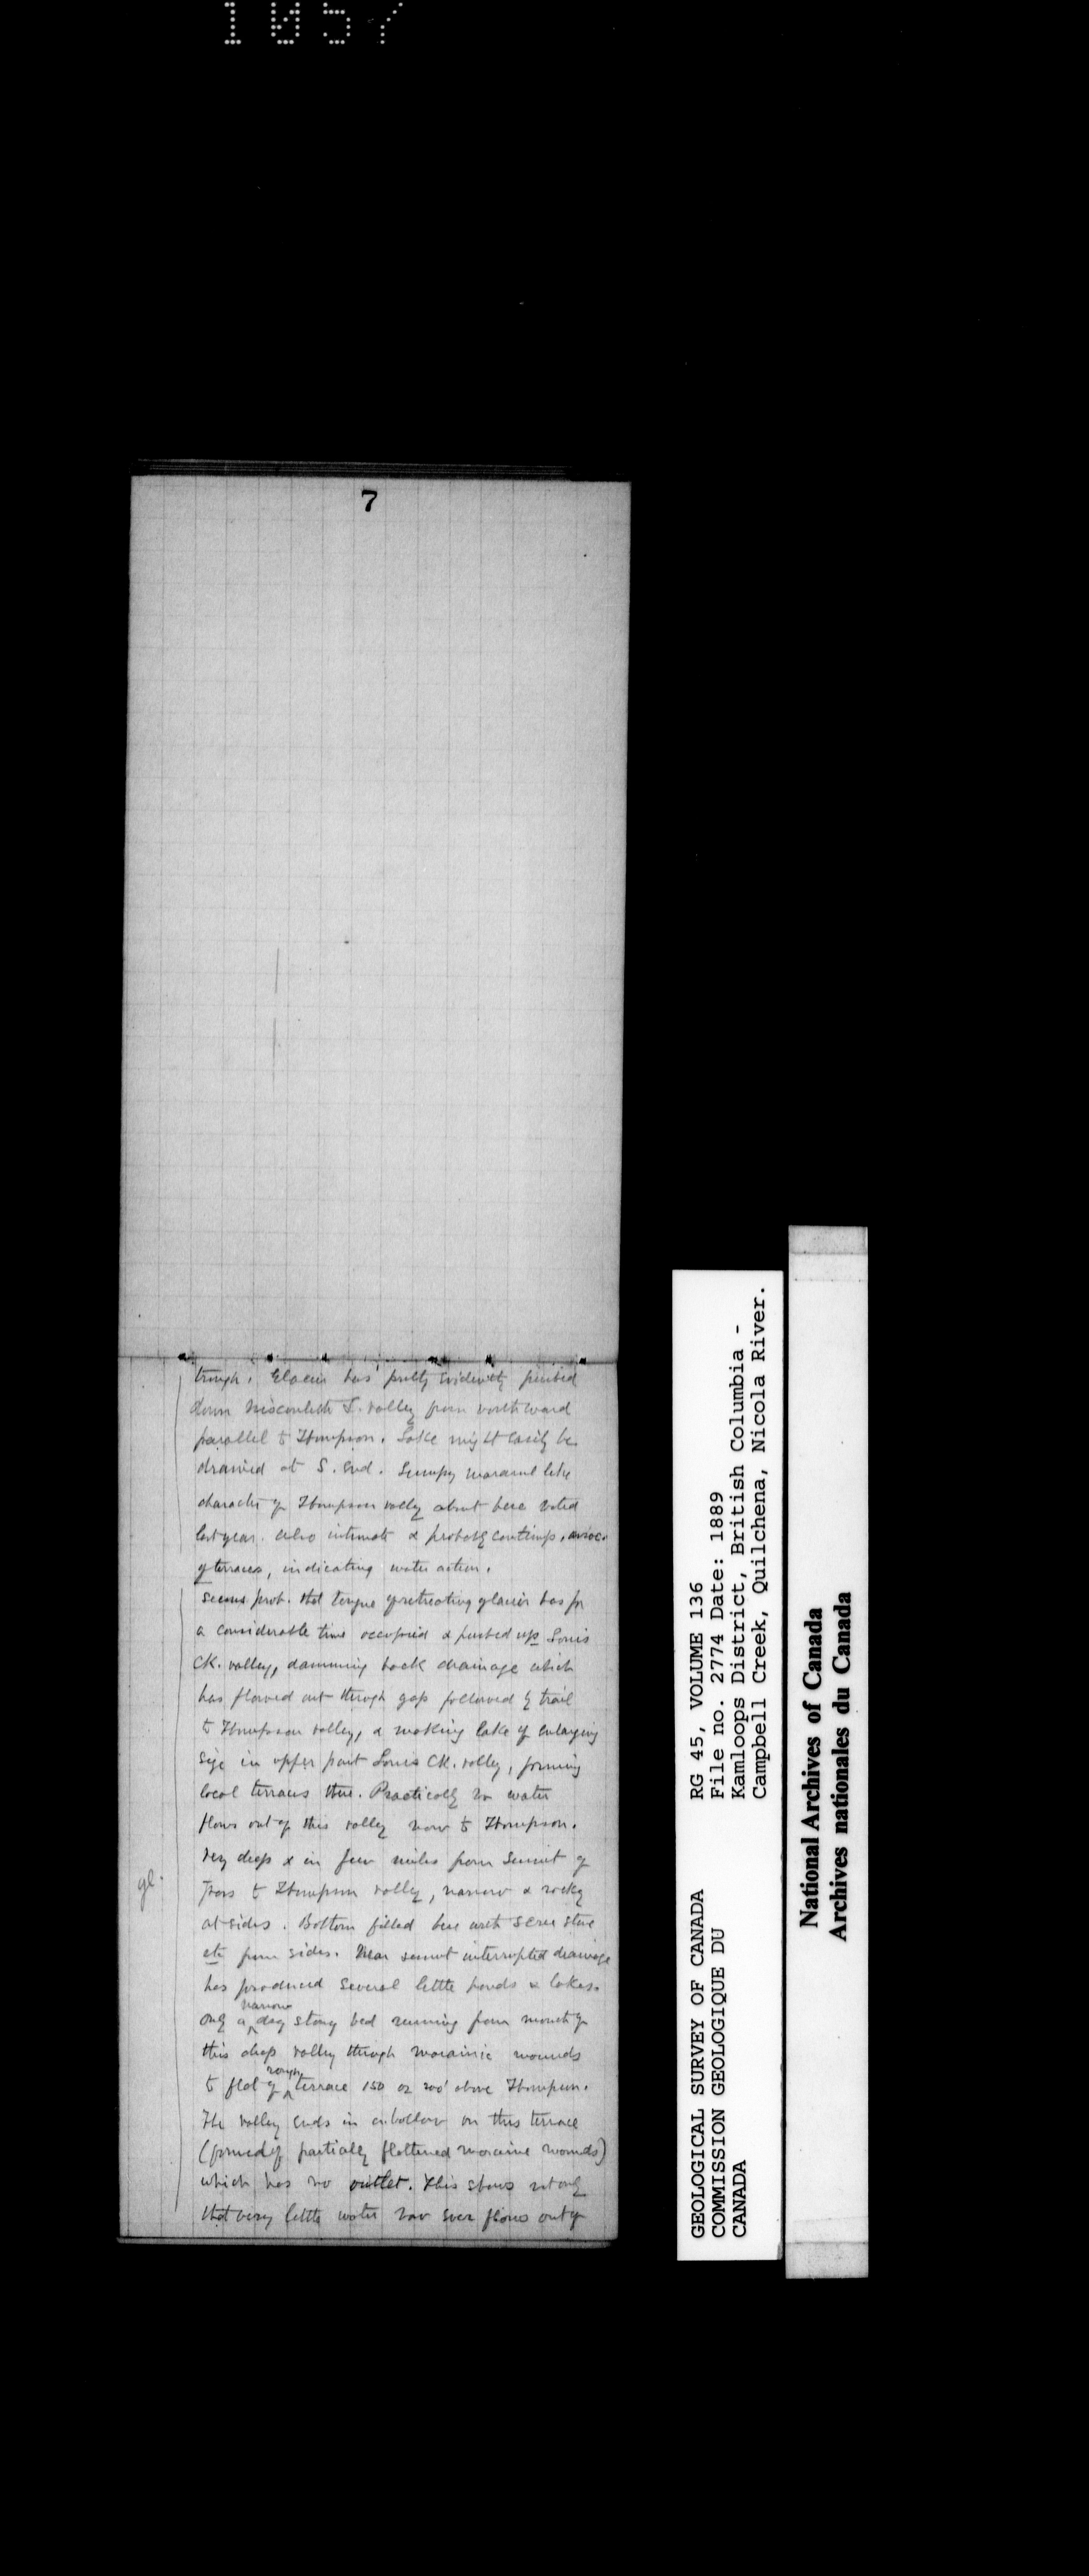 1057
7
trough. Glacier has pretty evidently pushed
down Niskonlith L. valley from northward
parallel to Thompson. Lake might easily be
drained at S. end. Lumpy moraine like
character of Thompson valley about here noted
last year. also intimate & probably contemp. assoc.
of terraces, indicating water action.
Seems prob. that tongue of retreating glacier has for
a considerable time occupied & pushed up Louis
Ck. valley, damming back drainage which
has flowed out through gap followed by trail
to Thompson valley, & making lake of enlarging
size in upper part Louis Ck. valley, forming
local terraces there. Practically no water
flows out of this valley now to Thompson.
Very deep & in few miles from summit of
pass to Thompson valley, narrow & rocky
at sides. Bottom filled here with scree stone
etc from sides. Near summit interrupted drainage
has produced several little ponds & lakes.
gl.
Only a narrow dry stony bed running from mouth of
this deep valley through morainic mounds
to flat of rough terrace 150 or 200' above Thompson.
The valley ends in a hollow on this terrace
(formed of partially flattened moraine mounds)
which has no outlet. This shows not only
that very little water now ever flows out of
GEOLOGICAL SURVEY OF CANADA
COMMISSION GEOLOGIQUE DU
CANADA
RG 45, VOLUME 136
File no. 2774 Date: 1889
Kamloops District, British Columbia -
Campbell Creek, Quilchena, Nicola River.
National Archives of Canada
Archives nationales du Canada